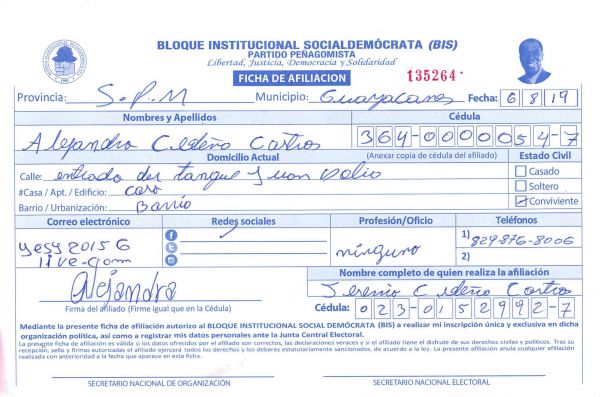 BLOQUE INSTITUCIONAL SOCIALDEMÓCRATA (BIS)
PARTIDO PEÑAGOMISTA
Libertad, Justicia, Democracia y Solidaridad
FICHA DE AFILIACION
135264
Provincia: S.P.M Municipio: Guayacanes Fecha: 6 8 19
Nombres y Apellidos Cédula
Alejandra Cedeño Castros 364-0000054-7
Domicilio Actual (Anexar copia de cédula del afiliado) Estado Civil
Calle: entrada del tanque Juan Dolio Casado
#Casa / Apt. / Edificio: casa Soltero
Barrio / Urbanización: Barrio Conviviente
Correo electrónico Redes sociales Profesión/Oficio Teléfonos
yesy 2015 G ninguno 1) 829-876-8006
live-com 2)
Nombre completo de quien realiza la afiliación
Alejandra Cedeño Castros
Firma del afiliado (Firme igual que en la Cédula) Cédula: 023-0152992-7
Mediante la presente ficha de afiliación autorizo al BLOQUE INSTITUCIONAL SOCIAL DEMÓCRATA (BIS) a realizar mi inscripción única y exclusiva en dicha
organización política, así como a registrar mis datos personales ante la Junta Central Electoral.
La presente ficha de afiliación es válida si los datos ofrecidos por el afiliado son correctos, las declaraciones veraces y si el afiliado tiene el disfrute de sus derechos civiles y políticos. Tras su
recepción, sello y firmas autorizadas el afiliado ejercerá todos los derechos y los deberes estatutariamente sancionados, de acuerdo a la ley. La presente afiliación anula cualquier afiliación
realizada con anterioridad a la fecha que aparece en esta ficha.
SECRETARIO NACIONAL DE ORGANIZACIÓN SECRETARIO NACIONAL ELECTORAL